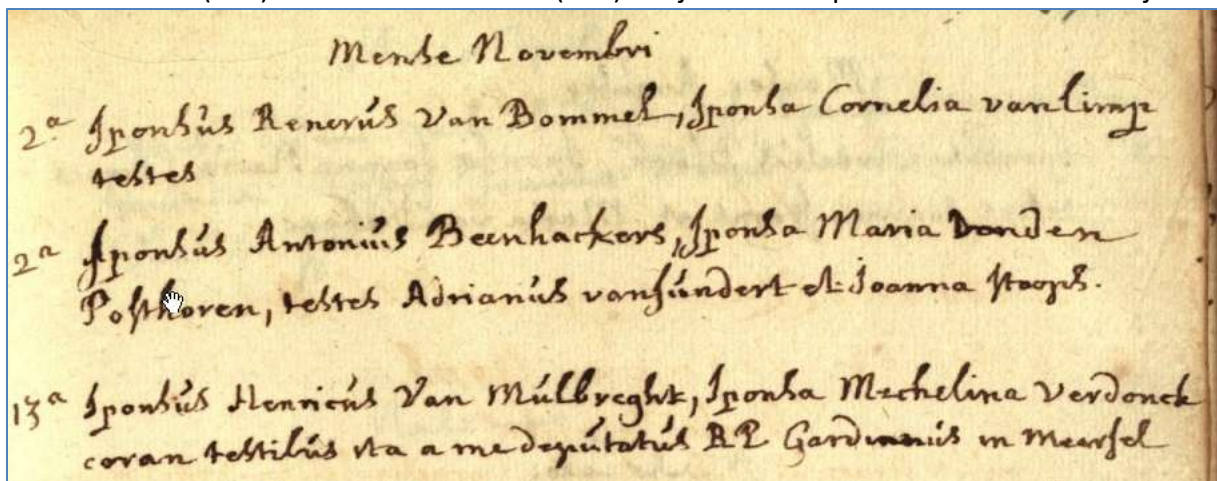 Mense Novembri
2a Sponsus Renerus Van Bommel, Sponsa Cornelia van limp
testes
2a Sponsus Antonius Beenhackers, Sponsa Maria Vanden
Posthoren, testes Adrianus van sundert et Joanna stoops.
13a Sponsus Henricus Van Mulbreght, Sponsa Mechelina Verdonck
coran testibus ita a me deputatus RP Gardianus in Meersel